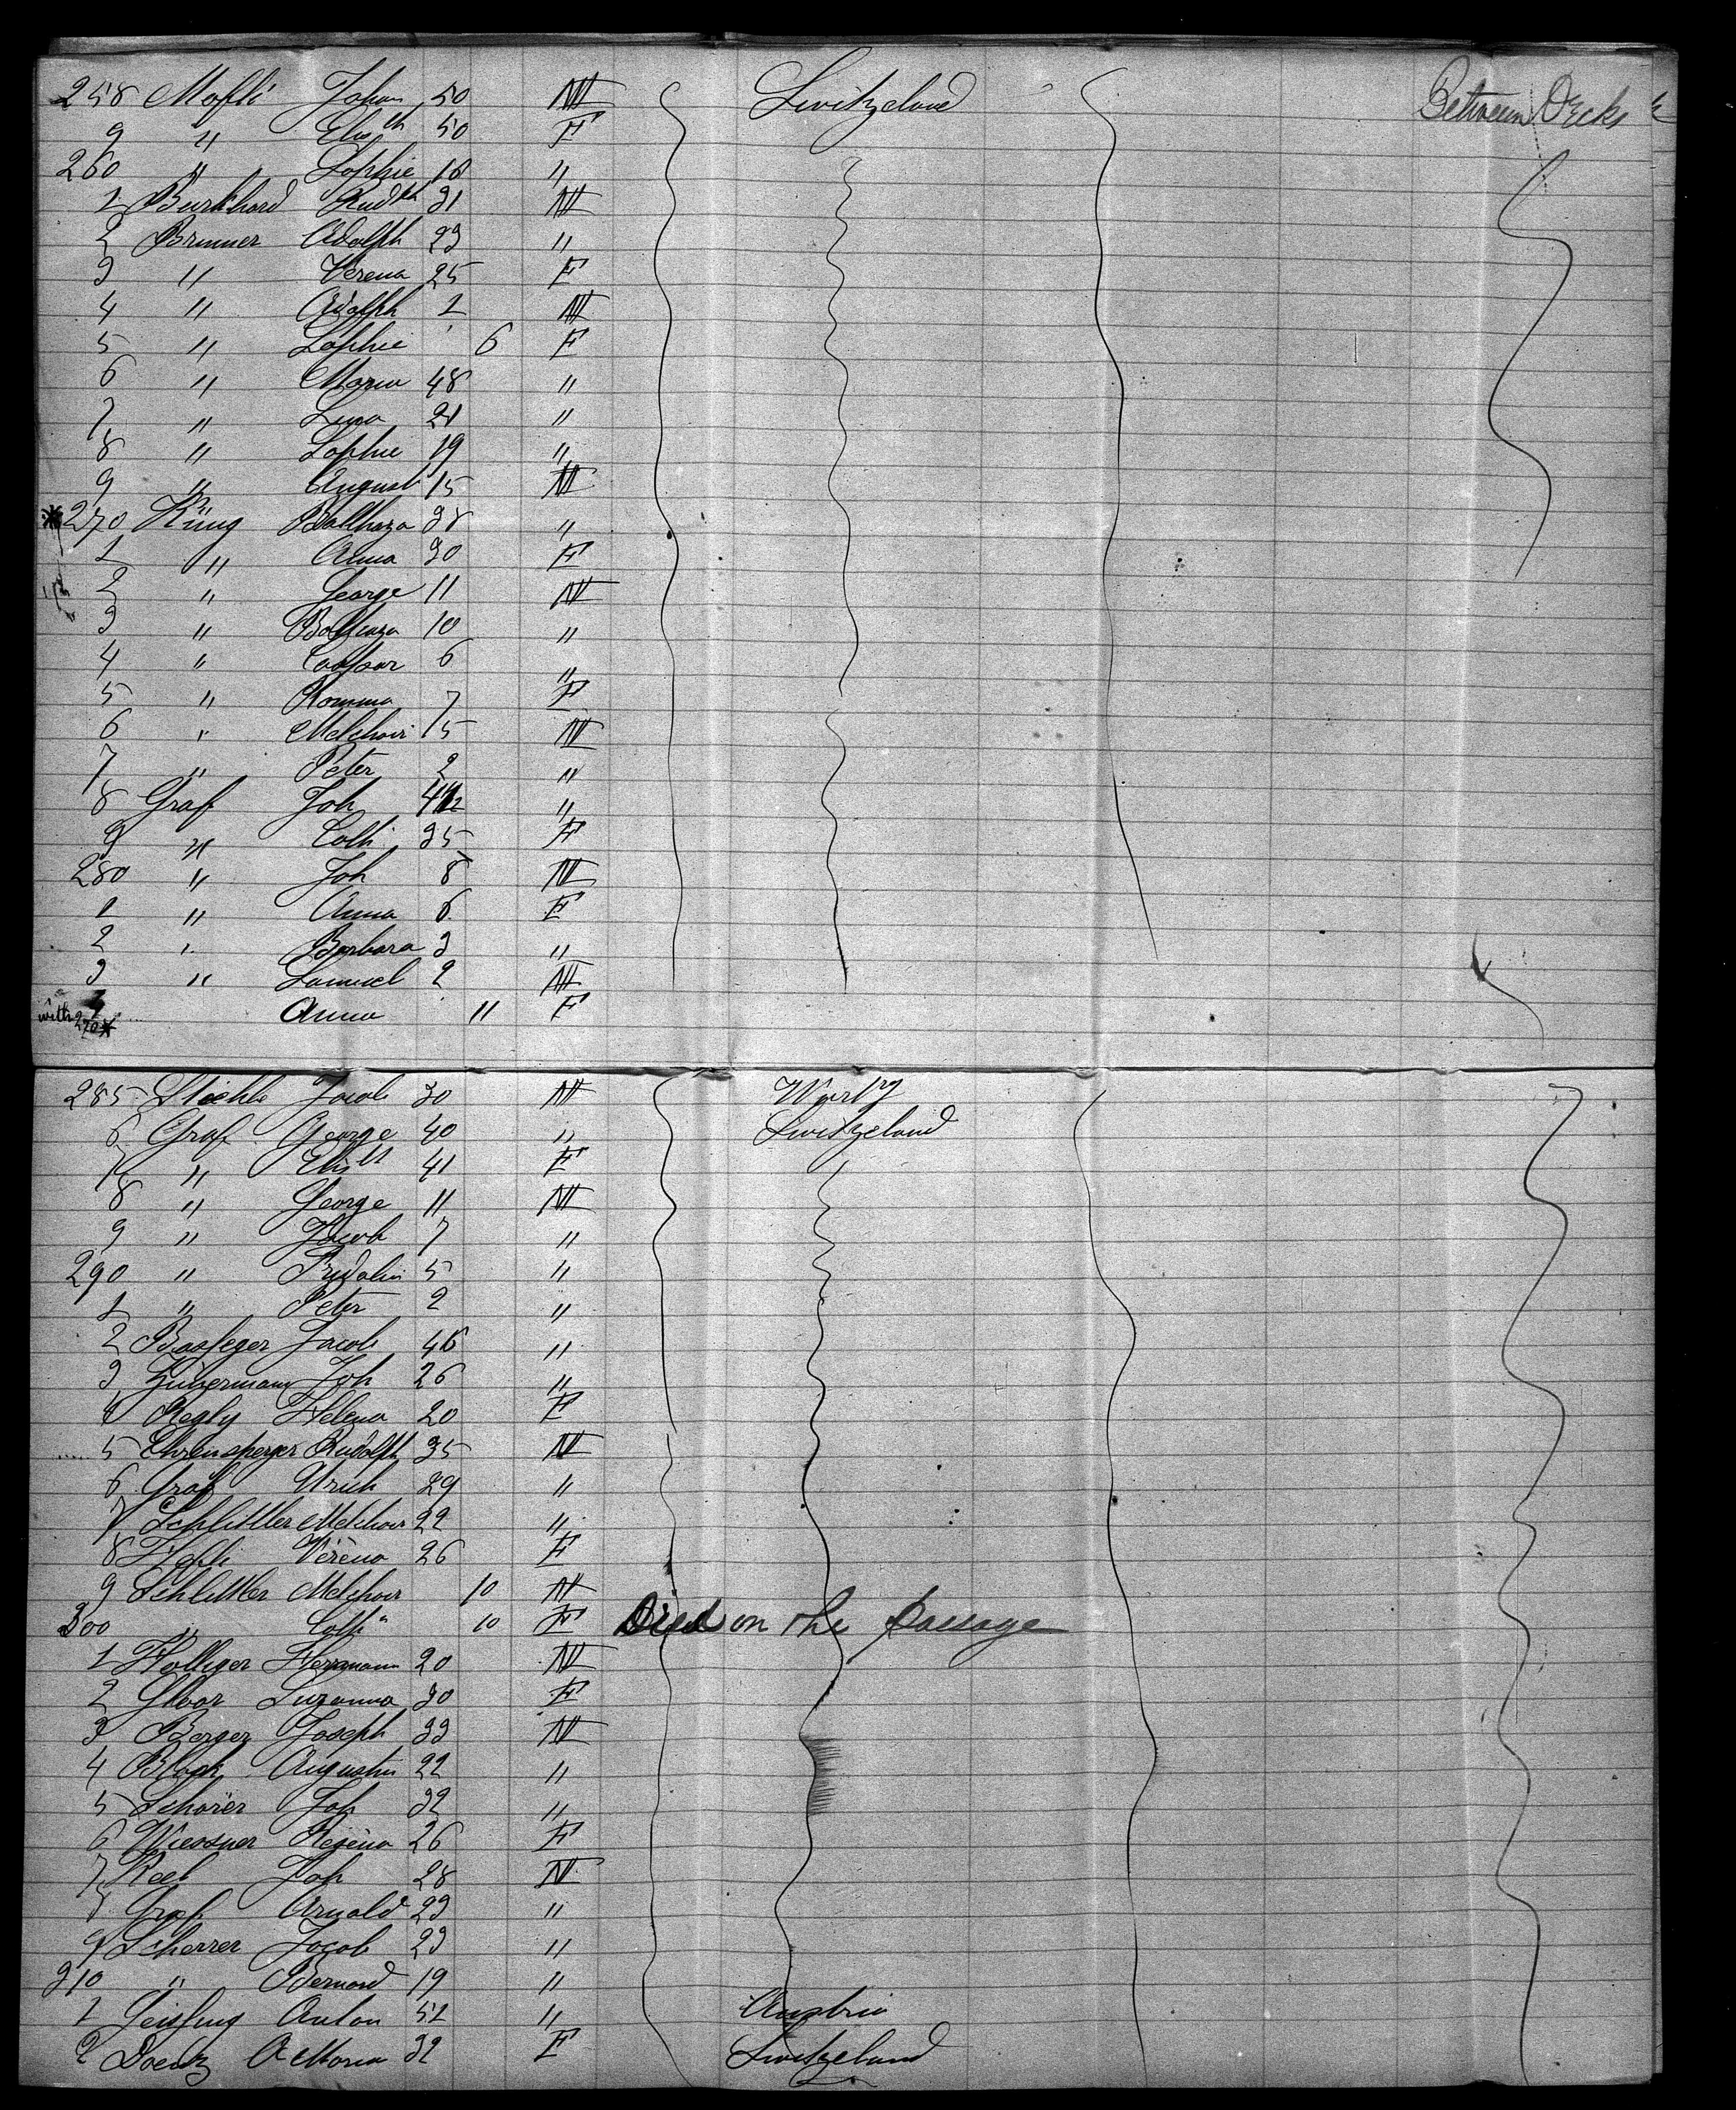 258 Mafli Johan 50 M Switzeland Between Decks
9 " Elisth 50 F
260 " Sophie 18 "
1 Burkhard Rudlh 31 M
2 Brunner Adolph 23 "
3 " Verena 25 F
4 " Adolph 1 M
5 " Sophie 6 F
6 " Maria 48 "
7 " Lina 21 "
8 " Sophie 19 "
9 " August 15 M
*270 Küng Balthaza 38 "
1 " Anna 30 F
2 " George 11 M
3 " Balthaza 10 "
4 " Caspar 6 "
5 " Romma 7 F
6 " Melchoir 15 M
7 " Peter 2 "
8 Graf Joh 42 "
9 " Cath 35 F
280 " Joh 8 M
1 " Anna 6 F
2 " Barbara 3 "
3 " Samuel 2 M
4 Anna 11 F
with 270*
285 Jacob 30 M Wurtg
6 Graf George 40 " Switzeland
7 " Elisth 41 F
8 " George 11 M
9 " Jacob 7 "
290 " Fridolin 5 "
1 " Peter 2 "
2 Jacob 46 "
3 Zimermann Joh 26 "
4 Regly Helena 20 F
5 Ehrensperger Rudolph 35 M
6 Graf Ulrich 29 "
7 Schlittler Melchoir 22 "
8 Hefli Verena 26 F
9 Schlittler Melchoir 10 M
300 " Cath" 10 F Died on the Passage
1 Holliger Hermann 20 M
2 Gloor Suzanna 30 F
3 Berger Joseph 33 M
4 Block Augustin 22 "
5 Schorer Joh 32 "
6 Wiessner Regena 26 F
7 Reel Joh 28 M
8 Graf Arnold 23 "
9 Scherrer Jacob 23 "
310 " Bernard 19 "
1 Anton 52 " Austria
2 A Maria 32 F Switzeland